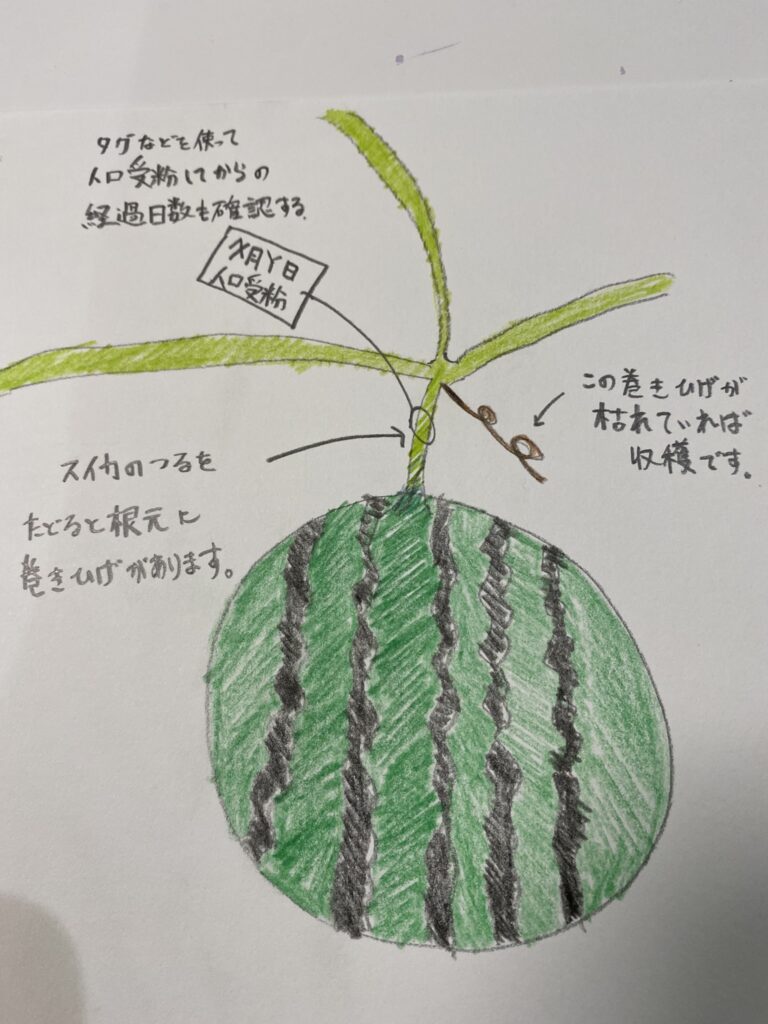 タグなどを使って
人口受粉してからの
経過日数も確認する。
X月Y日
人口受粉
この巻きひげが
枯れていれば
収穫です。
スイカのつるを
たどると根元に
巻きひげがあります。